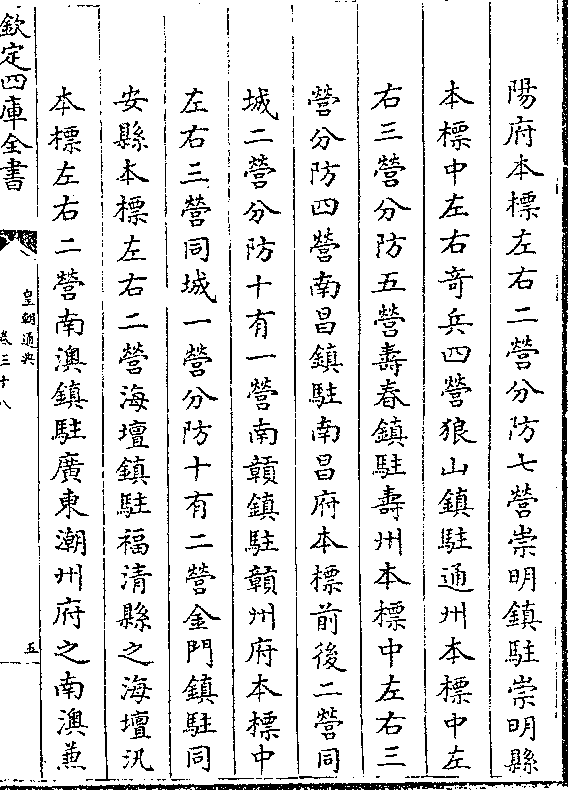 陽府本標左右二營分防七營崇明鎮駐崇明縣
本標中左右竒兵四營狼山鎮駐通州本標中左
右三營分防五營壽春鎮駐壽州本標中左右三
營分防四營南昌鎮駐南昌府本標前後二營同
城二營分防十有一營南贑鎮駐贑州府本標中
左右三營同城一營分防十有二營金門鎮駐同
安縣本標左右二營海壇鎮駐福清縣之海壇汛
本標左右二營南澳鎮駐廣東潮州府之南澳兼
欽定四庫全書
皇朝通典
卷三十八
五